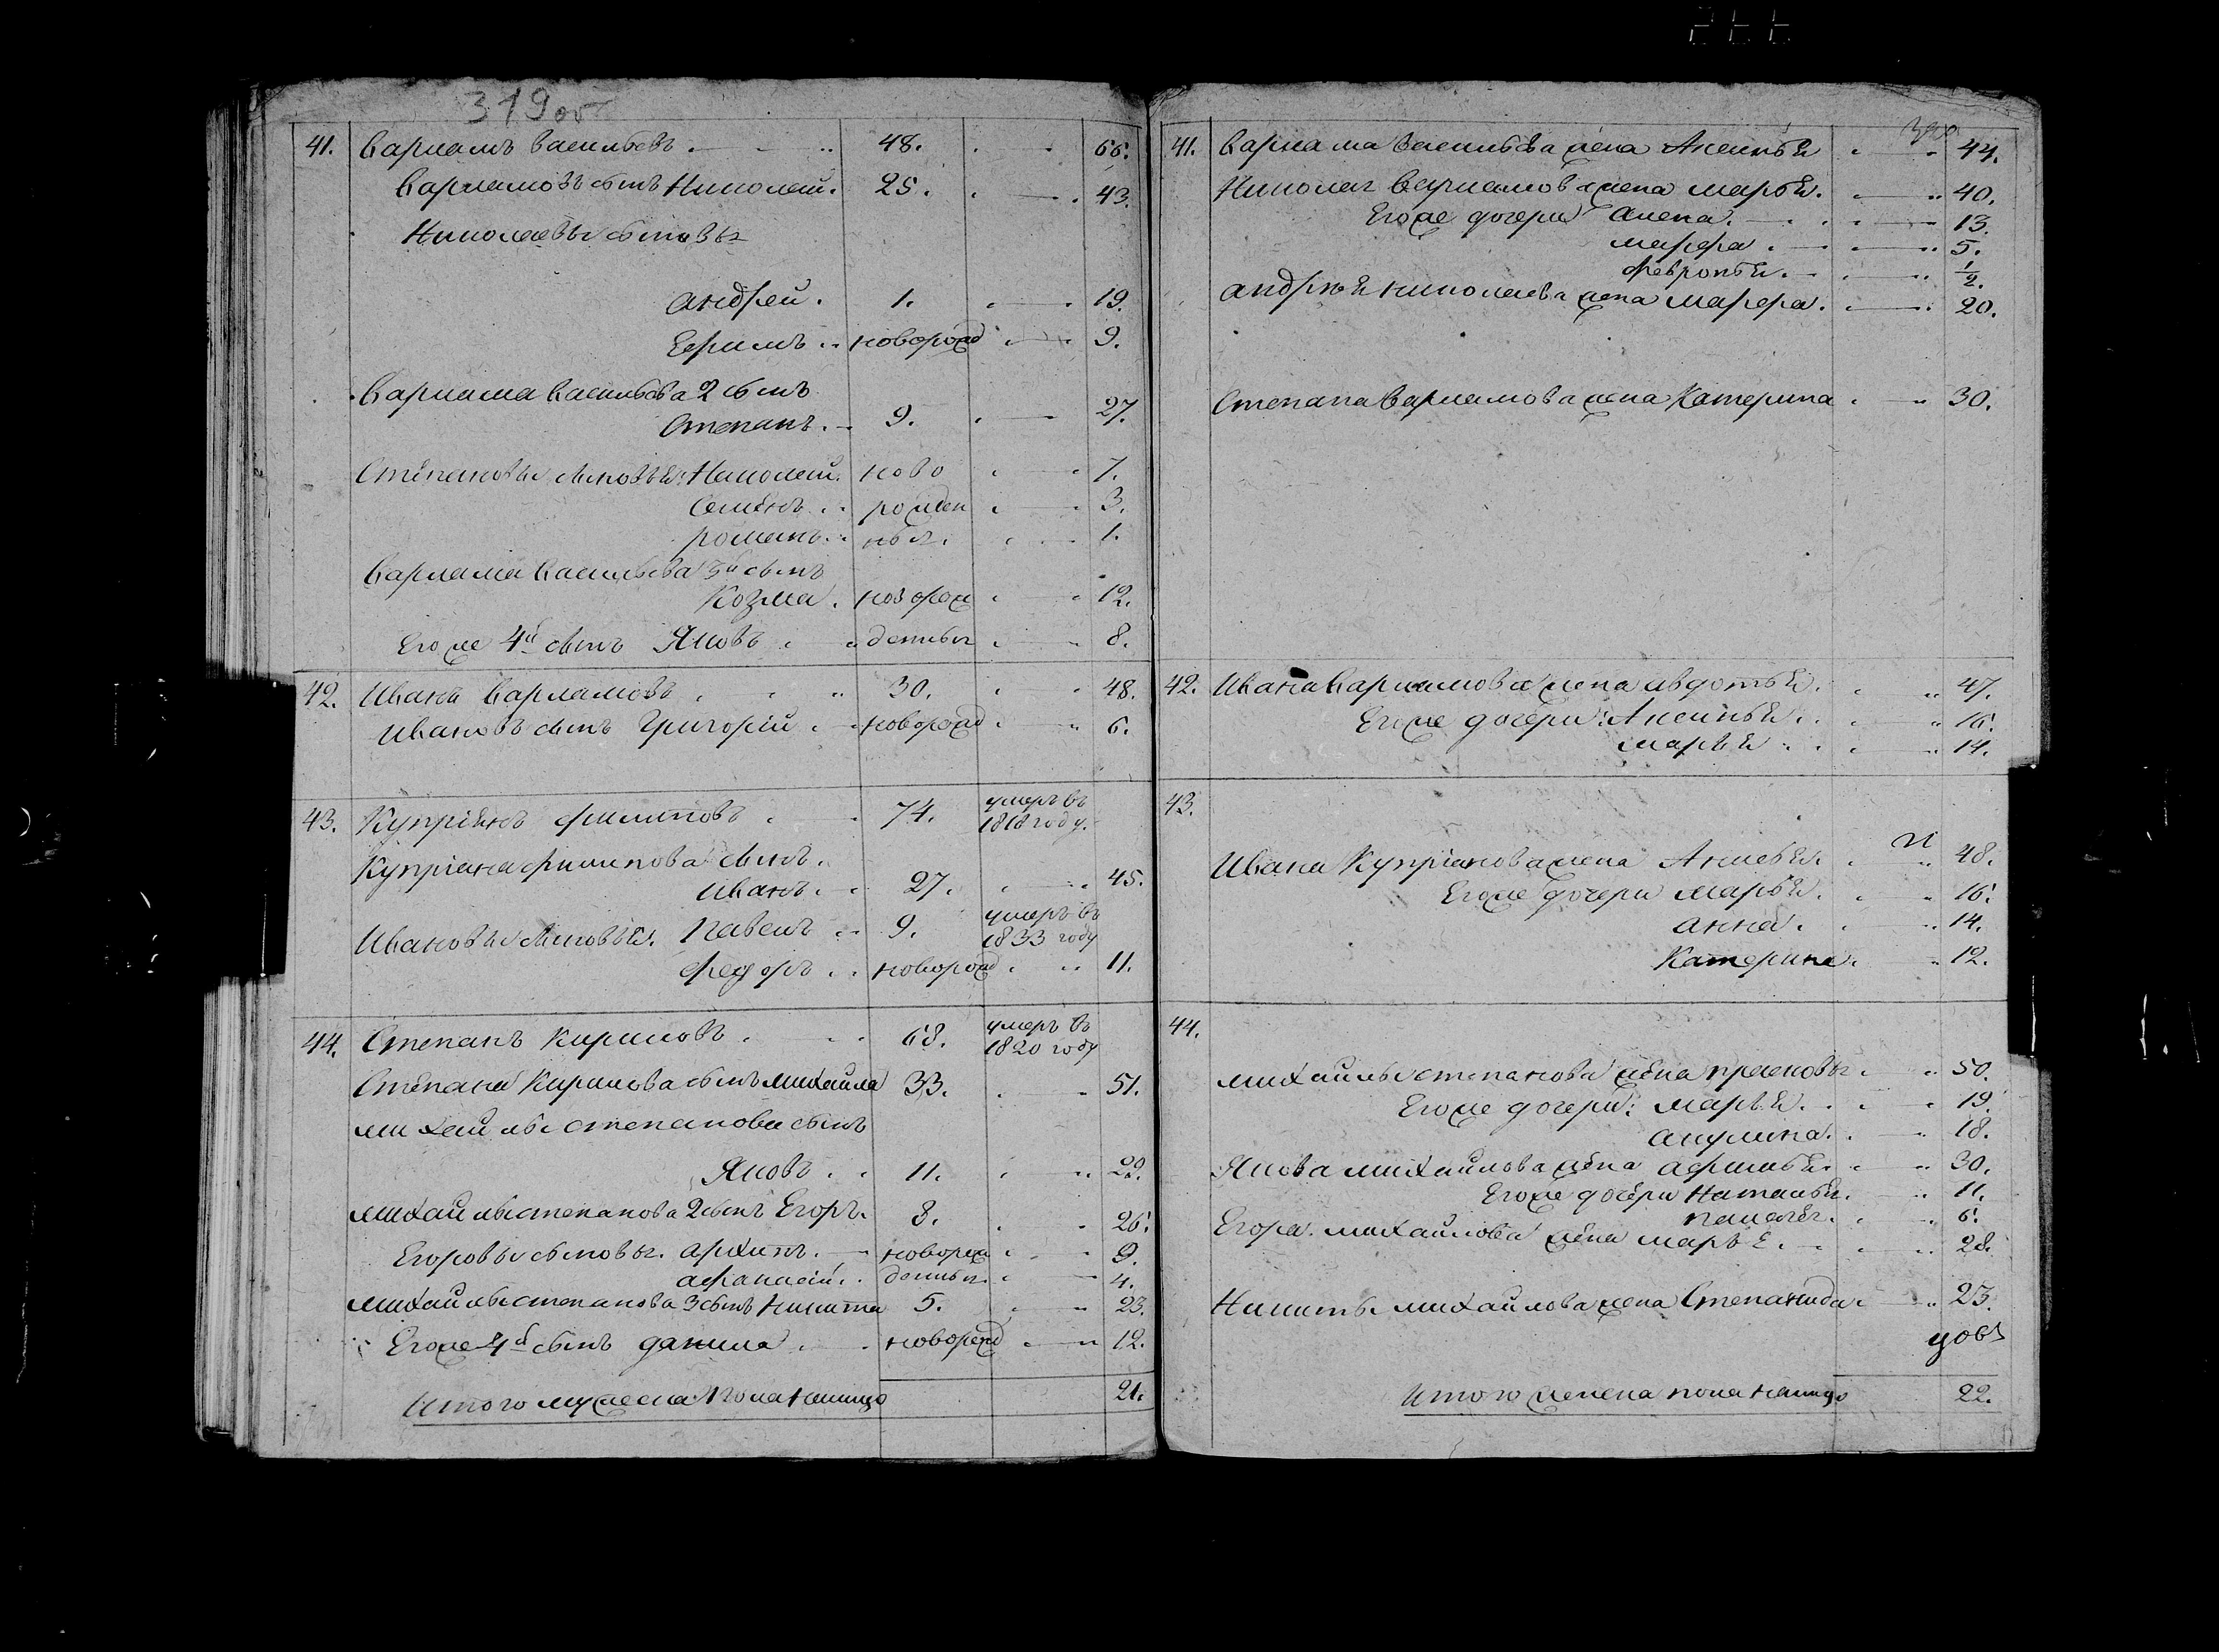 319 об
41. Варламъ Васильевъ 48. 66.
Варламовъ сынъ Николай. 25. 43.
Николаевы сыновья
Андрей. 1. 19.
Ефимъ новорожд 9.
Варлама Васильева 2 сынъ
Степанъ. 9. 27.
Степановы сыновья: Николай. ново 7.
Семёнъ рожден 3.
Романъ. ныя. 1.
Варлама Васильева 3й сынъ
Козма. новорож 12.
Его же 4й сынъ Яковъ денныя 8.
42. Иванъ Варламовъ 30. 48.
Ивановъ сынъ Григорій новорожд 6.
43. Купріянъ Филиповъ 74. умеръ въ 1818 году.
Купріана Филипова сынъ.
Иванъ. 27. 45.
Ивановы сыновья. Павелъ 9. умеръ въ 1833 году
Федоръ новорожд 11.
44. Степанъ Кириловъ 68. умеръ въ 1820 году
Степана Кирилова сынъ Михайла 33. 51.
Михайлы Степанова сынъ
Яковъ 11. 29.
Михайлы Степанова 2 сынъ Егоръ. 8. 26.
Егоровы сыновья. Архипъ. новорож 9.
Афанасій. денныя. 4.
Михайлы Степанова 3 сынъ Никита 5. 23.
Его же 4й сынъ Данила новорожд 12.
Итого мужеска пола налицо 21.
41. Варлама Васильева жена Аксинья 44.
Николая Варламова жена Марья. 40.
Его же дочери Алена. 13.
Марфа. 5.
Февронья. 1/2.
Андрея Николаева жена Марфа. 20.
Степана Варламова жена Катерина 30.
42. Ивана Варламова жена Авдотья. 47.
Его же дочери: Аксинья. 16.
Марья 14.
43.
Ивана Купріянова жена Акилина 48.
Его же дочери Марья. 16.
Анна. 14.
Катерина. 12.
44.
Михайлы Степанова жена Прасковья 50.
Его же дочери: Марья. 19.
Акулина. 18.
Якова Михайлова жена Афимья 30.
Его же дочери Наталья. 11.
Палагея. 6.
Егора Михайлова жена Марья. 28.
Никиты Михайлова жена Степанида 23.
Итого женска пола налицо 22.